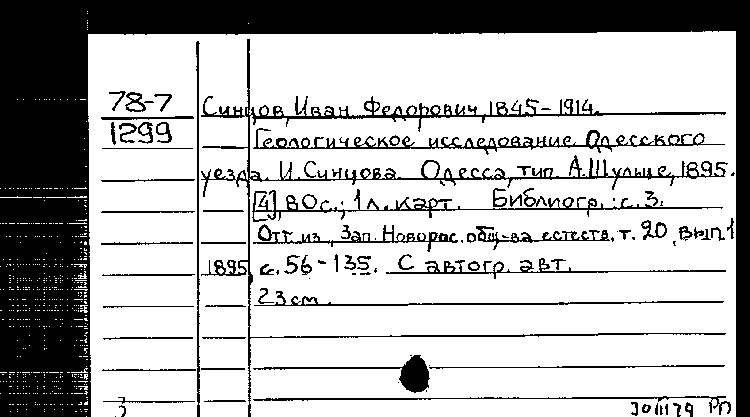 78-7 Синцов, Иван Федорович, 1845-1914.
1299 Геологическое исследование Одесского
уезда. И.Синцова. Одесса, тип. А.Шульце, 1895.
[4], 80с.; 1л. карт. Библиогр.: с. 3.
Отт. из, Зап. Новорос. общ-ва естеств. т. 20, вып. 1
1895, с. 56-135. С автогр. авт.
23см.
30III79 РП